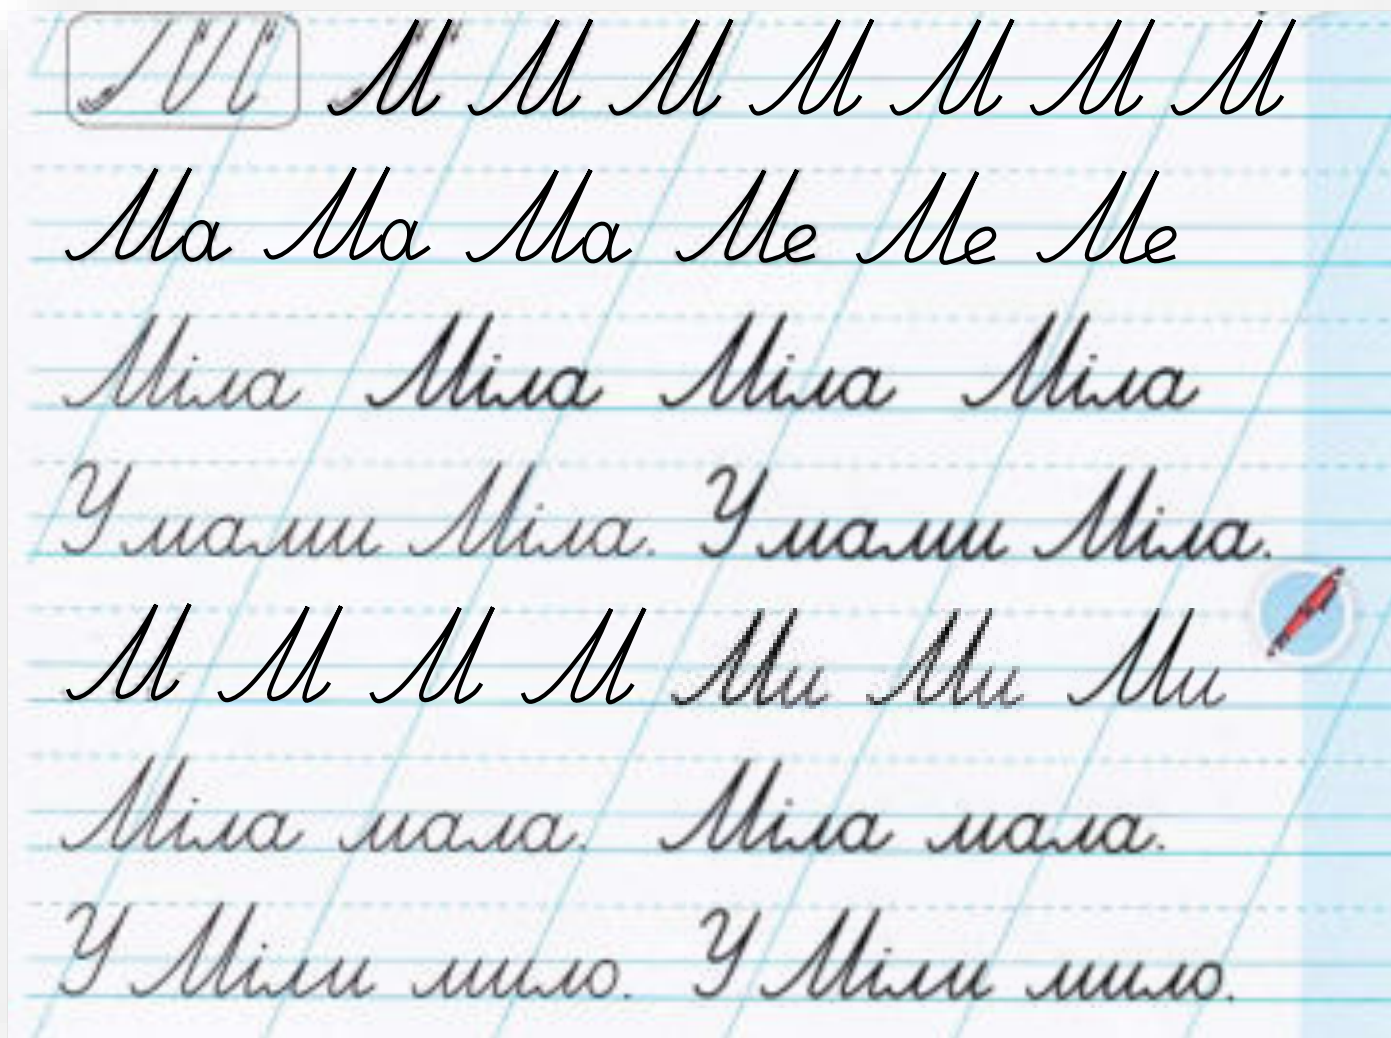 М М М М М М М М
Ма Ма Ма Ме Ме Ме
Міла Міла Міла Міла
У мами Міла. У мами Міла.
М М М М Ми Ми Ми
Міла мала. Міла мала.
У Міли мило. У Міли мило.